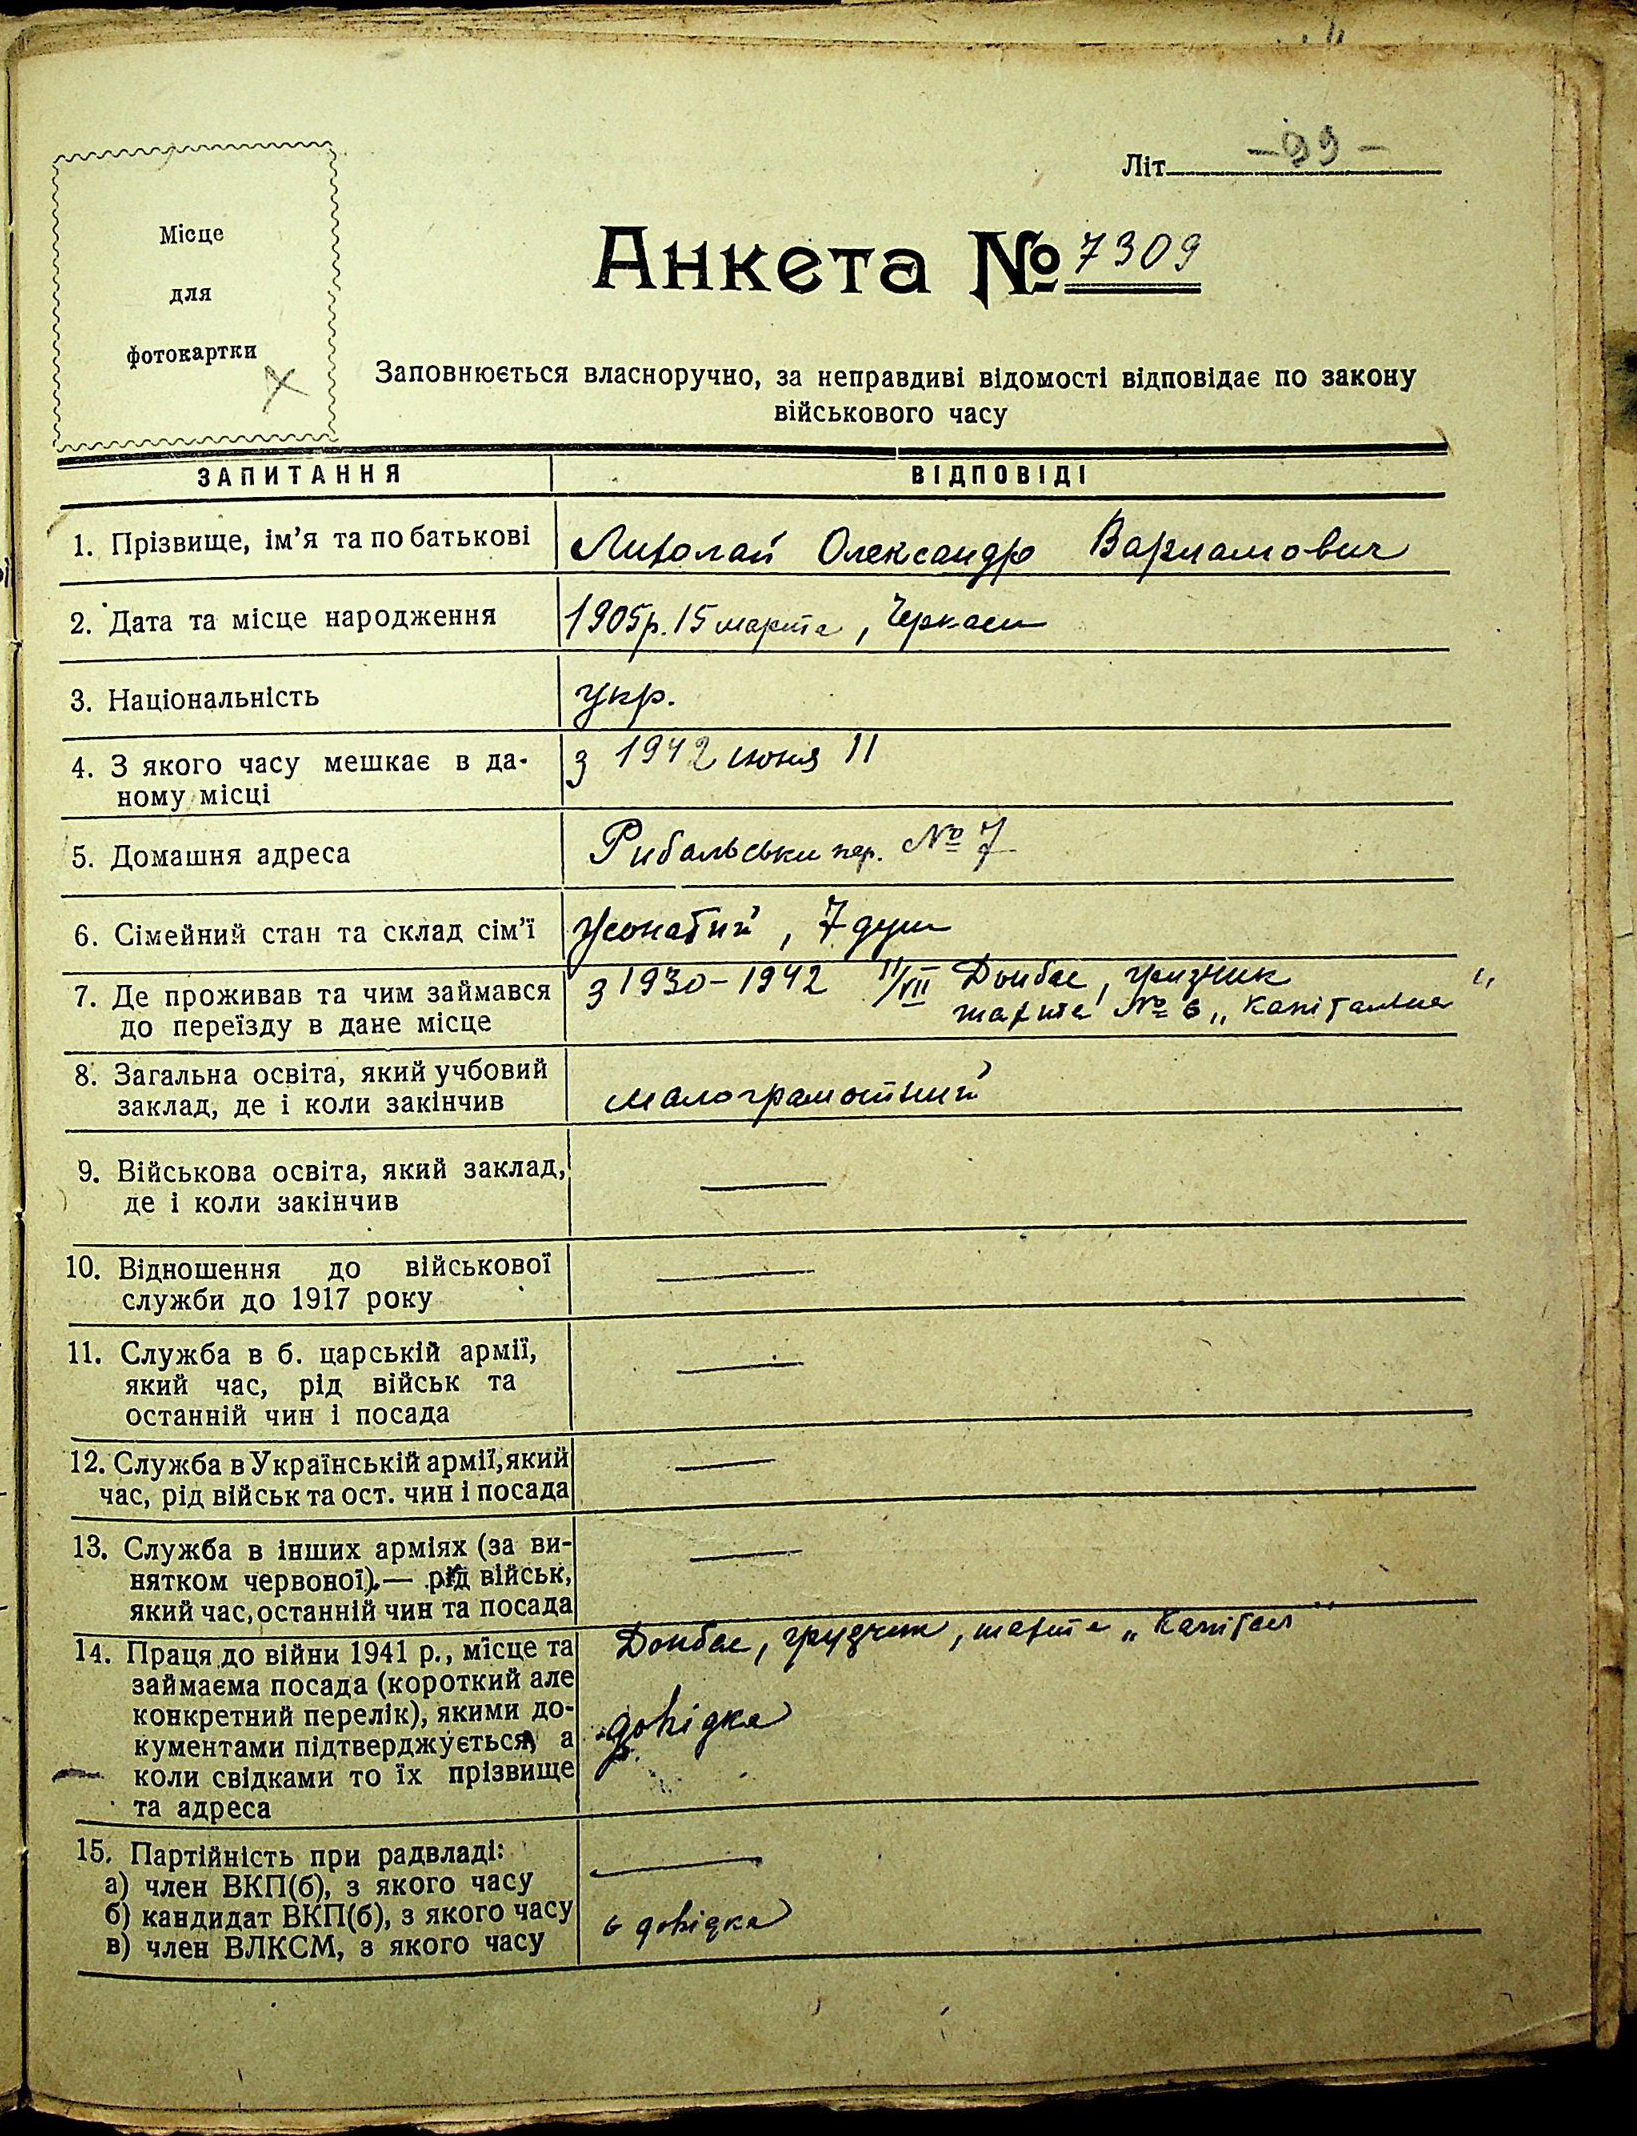 Літ -99-
Місце
для
фотокартки
Анкета № 7309
Заповнюється власноручно, за неправдиві відомості відповідає по закону
військового часу
ЗАПИТАННЯ ВІДПОВІДІ
1. Прізвище, ім'я та по батькові Лихолай Олександр Варламович
2. Дата та місце народження 1905р. 15 марта, Черкаси
3. Національність укр.
4. З якого часу мешкає в да-
ному місці
з 1942 июня 11
5. Домашня адреса Рибальськи пер. № 7
6. Сімейний стан та склад сім'ї Жонатий, 7 душ
7. Де проживав та чим займався
до переїзду в дане місце
з 1930-1942 11/VII Донбас,
шахта № 6 „Капітальна"
8. Загальна освіта, який учбовий
заклад, де і коли закінчив
малограмотний
9. Військова освіта, який заклад,
де і коли закінчив
—
10. Відношення до військової
служби до 1917 року
—
11. Служба в б. царській армії,
який час, рід військ та
останній чин і посада
—
12. Служба в Українській армії, який
час, рід військ та ост. чин і посада
—
13. Служба в інших арміях (за ви-
нятком червоної).— рід військ,
який час, останній чин та посада
—
14. Праця до війни 1941 р., місце та
займаєма посада (короткий але
конкретний перелік), якими до-
кументами підтверджується, а
коли свідками то їх прізвище
та адреса
Донбас, шахта „Капітал"
довідка
15. Партійність при радвладі:
а) член ВКП(б), з якого часу
б) кандидат ВКП(б), з якого часу
в) член ВЛКСМ, з якого часу
—
є довідка